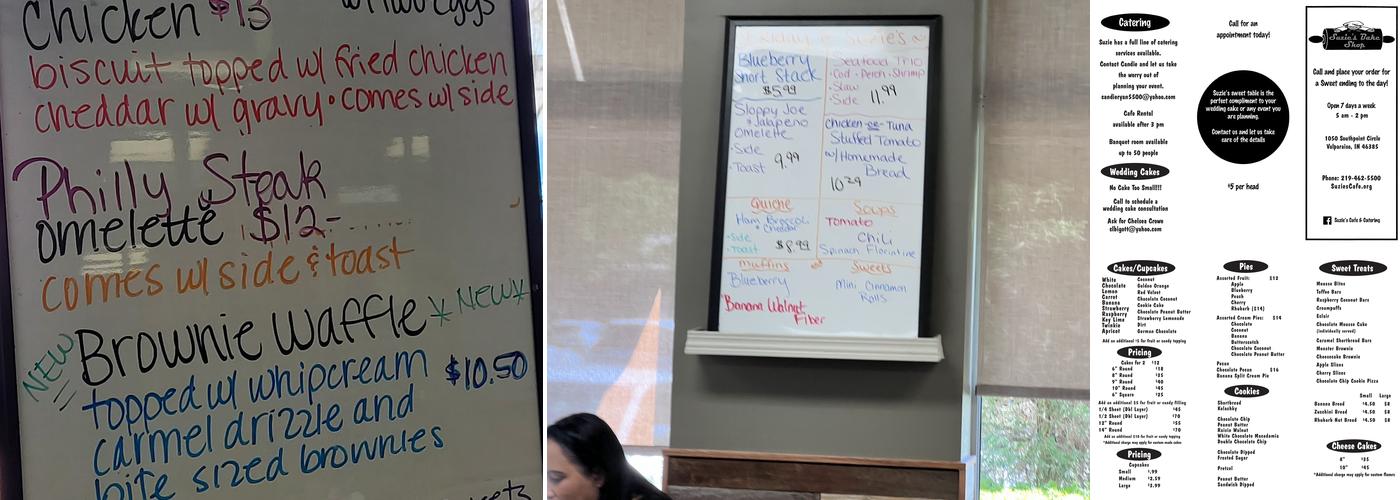 Chicken $13
biscuit topped w/ fried chicken
cheddar w/ gravy • comes w/ side
Philly Steak
omelette $12-
comes w/ side & toast
Brownie Waffle *NEW*
NEW
topped w/ whipcream $10.50
carmel drizzle and
bite sized brownies
Friday @ Suzie's
Blueberry
Short Stack
$5.99
Seafood Trio
• Cod • Perch • Shrimp
• Slaw
• Side 11.99
Sloppy Joe
& Jalapeno
Omelette
• Side
• Toast 9.99
Chicken -or- Tuna
Stuffed Tomato
w/ Homemade
Bread
10.29
Quiche
Ham Broccoli
& Cheddar
• Side
• Toast $8.99
Soups
Tomato
Chili
Spinach Florintine
Muffins
Blueberry
Banana Walnut
Fiber
Sweets
Mini Cinnamon
Rolls
Catering
Suzie has a full line of catering
services available.
Contact Candie and let us take
the worry out of
planning your event.
candieryan5500@yahoo.com
Cafe Rental
available after 3 pm
Banquet room available
up to 50 people
Wedding Cakes
No Cake Too Small!!!!
Call to schedule a
wedding cake consultation
Ask for Chelsea Crown
clbigott@yahoo.com
Call for an
appointment today!
Suzie's sweet table is the
perfect compliment to your
wedding cake or any event you
are planning.
Contact us and let us take
care of the details
$5 per head
Suzie's Bake
Shop
Call and place your order for
a Sweet ending to the day!
Open 7 days a week
5 am - 2 pm
1050 Southpoint Circle
Valparaiso, IN 46385
Phone: 219-462-5500
SuziesCafe.org
Suzie's Cafe & Catering
Cakes/Cupcakes
White
Chocolate
Lemon
Carrot
Banana
Strawberry
Raspberry
Key Lime
Twinkie
Apricot
Coconut
Golden Orange
Red Velvet
Chocolate Coconut
Cookie Cake
Chocolate Peanut Butter
Strawberry Lemonade
Dirt
German Chocolate
Add an additional $5 for fruit or candy topping
Pricing
Cakes for 2 $12
6" Round $18
8" Round $25
9" Round $40
10" Round $45
6" Square $25
Add an additional $5 for fruit or candy filling
1/4 Sheet (Dbl Layer) $45
1/2 Sheet (Dbl Layer) $70
12" Round $55
14" Round $70
Add an additional $10 for fruit or candy topping
*Additional charge may apply for custom made cakes
Pricing
Cupcakes
Small $.99
Medium $2.59
Large $3.99
Pies
Assorted Fruit: $12
Apple
Blueberry
Peach
Cherry
Rhubarb ($14)
Assorted Cream Pies: $14
Chocolate
Coconut
Banana
Butterscotch
Chocolate Coconut
Chocolate Peanut Butter
Pecan
Chocolate Pecan $16
Banana Split Cream Pie
Cookies
Shortbread
Kolachky
Chocolate Chip
Peanut Butter
Raisin Walnut
White Chocolate Macadamia
Double Chocolate Chip
Chocolate Dipped
Frosted Sugar
Pretzel
Peanut Butter
Sandwich Dipped
Sweet Treats
Mousse Bites
Toffee Bars
Raspberry Coconut Bars
Creampuffs
Eclair
Chocolate Mousse Cake
(individually served)
Caramel Shortbread Bars
Monster Brownie
Cheesecake Brownie
Apple Slices
Cherry Slices
Chocolate Chip Cookie Pizza
Small Large
Banana Bread $4.50 $8
Zucchini Bread $4.50 $8
Rhubarb Nut Bread $4.50 $8
Cheese Cakes
8" $35
10" $45
*Additional charge may apply for custom flavors